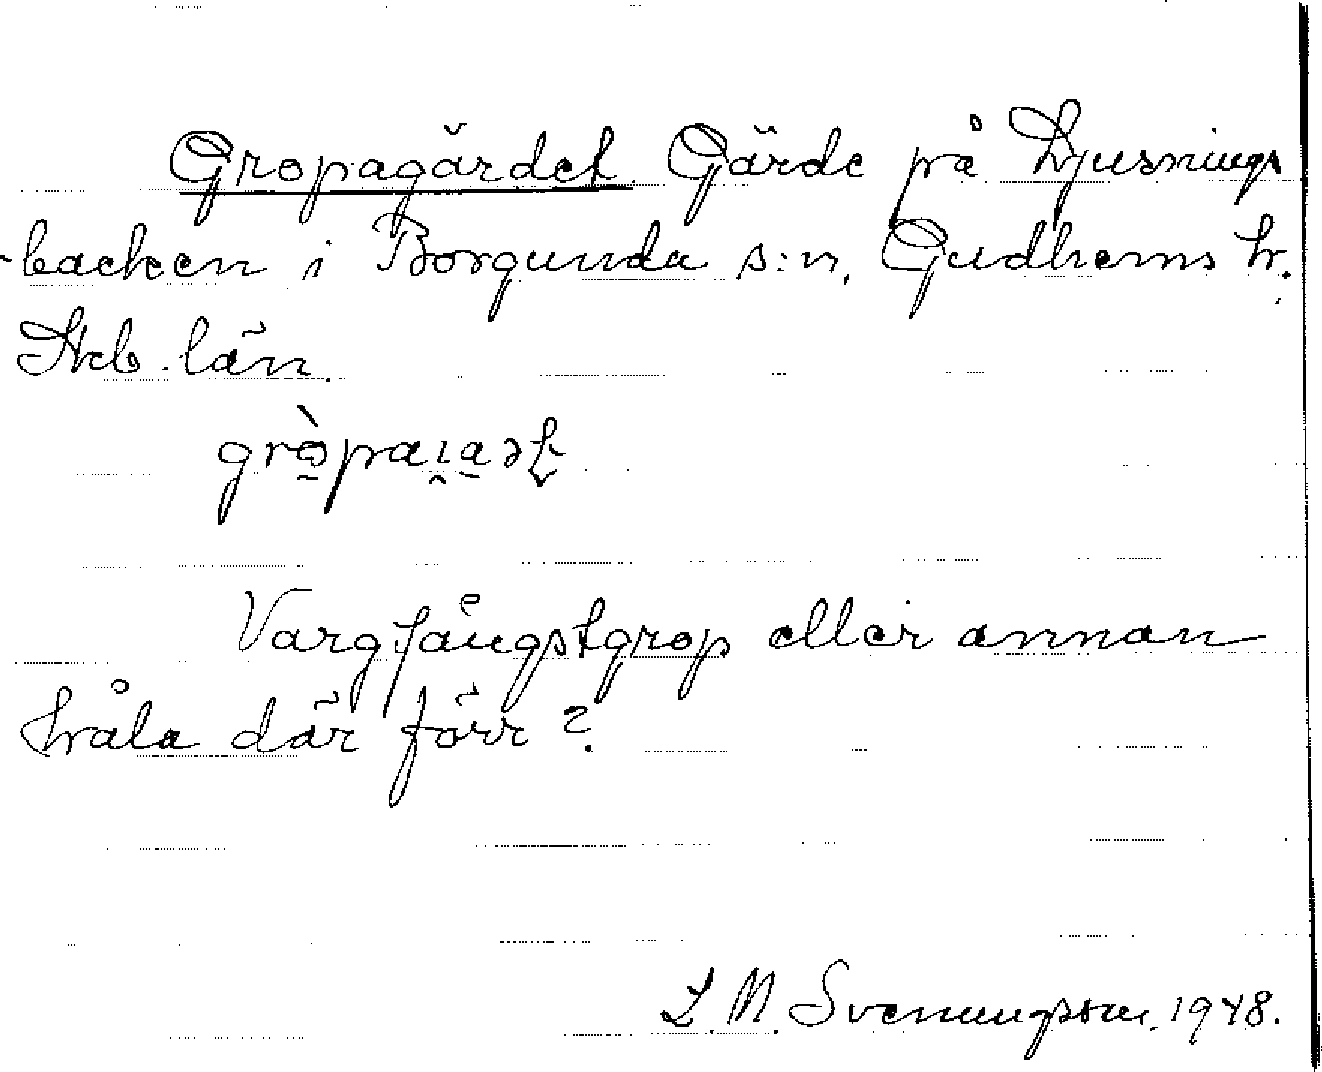 Gropagärdet Gärde på Ljusnings
-backen i Borgunda s:n, Gudhems hr.
Skb. län.
Vargfångstgrop eller annan
håla där förr?
L. M. Svenungsson. 1948.